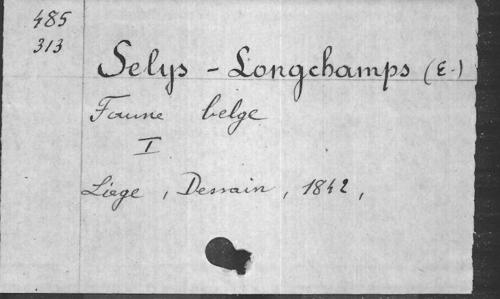 485
313
Selys - Longchamps (E.)
Faune belge
I
Liège, Dessain, 1842,